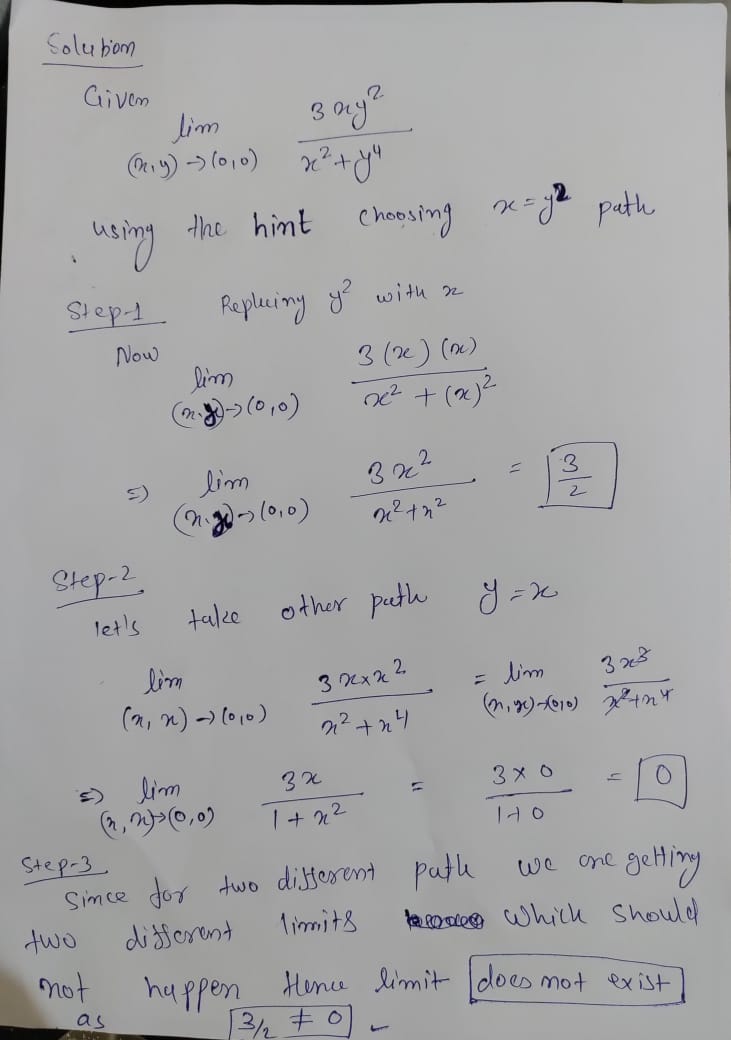 Solution
Given
lim (x,y) → (0,0) 3xy² / x² + y⁴
using the hint choosing x = y² path
Step-1 Replacing y² with x
Now
lim (x,y) → (0,0) 3(x)(x) / x² + (x)²
⇒ lim (x,y) → (0,0) 3x² / x² + x² = 3/2
Step-2
let's take other path y = x
lim (x,x) → (0,0) 3x×x² / x² + x⁴ = lim (x,x) → (0,0) 3x³ / x² + x⁴
⇒ lim (x,x) → (0,0) 3x / 1 + x² = 3×0 / 1+0 = 0
Step-3
Since for two different path we are getting
two different limits which should
not happen Hence limit does not exist
as 3/2 ≠ 0